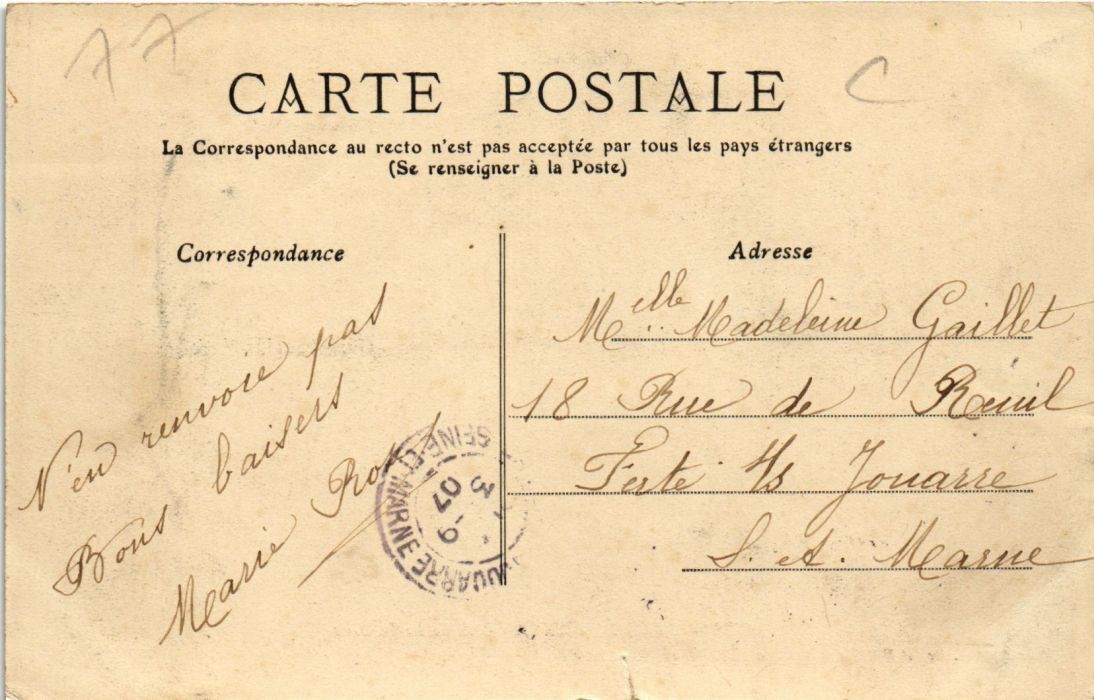 77
C
CARTE POSTALE
La Correspondance au recto n'est pas acceptée par tous les pays étrangers
(Se renseigner à la Poste)
Correspondance
N'en renvoie pas
Bons baisers
Marie
Adresse
Melle Madeleine Gaillet
18 Rue de Reuil
Ferté s/s Jouarre
S. et. Marne
SEINE-ET-MARNE
JOUARRE
3 -9
07